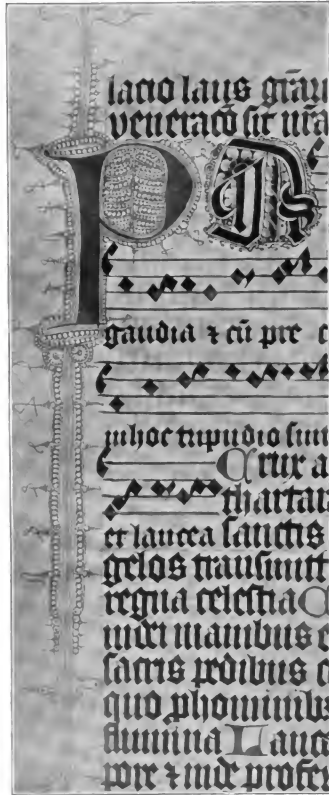 lacio laus grāu
veneracō sit nr̄a
P
gaudia ⁊ cū pre c
inhoc tripudio sint
Crux a
thartar
et lancea sanctis
gelos transmitt
regna celestia C
mdi manibus e
sacris pedibus c
quo ꝓhominibꝰ
flumina Lance
pore ⁊ inde profer